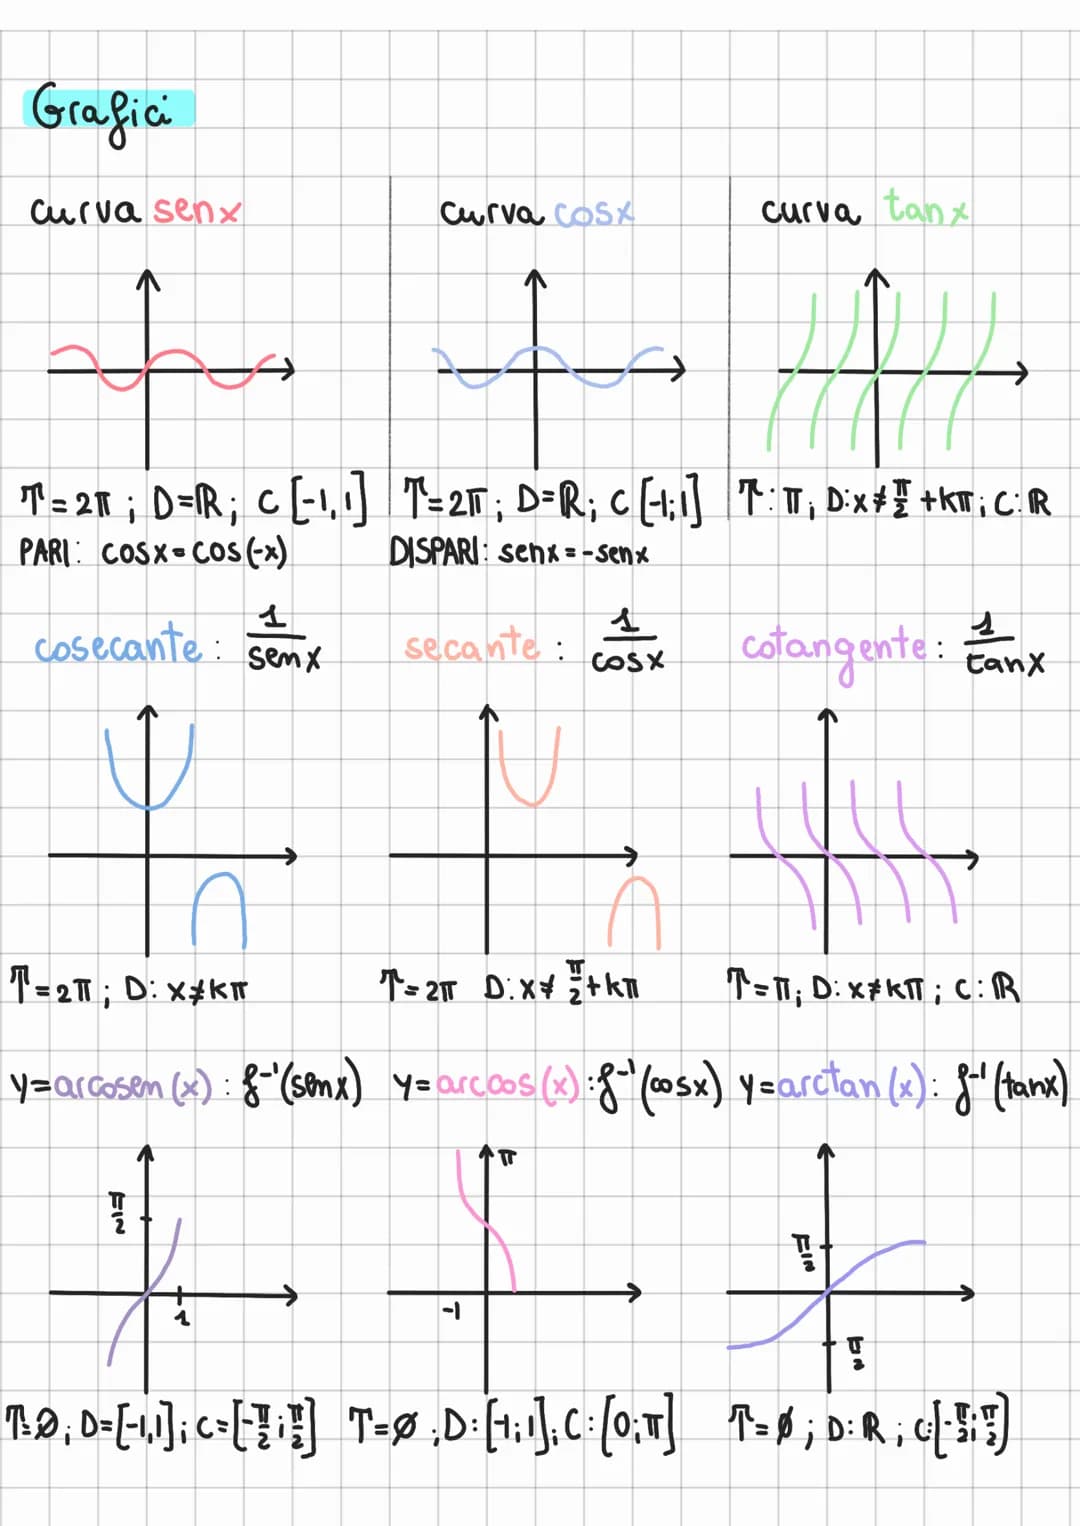 Grafici
curva senx
curva cosx
curva tanx
T=2π; D=ℝ; C [-1,1]
T=2π; D=ℝ; C [-1;1]
T:π; D:x≠π/2+kπ; C:ℝ
PARI: cosx=cos(-x)
DISPARI: senx=-senx
cosecante: 1/senx
secante: 1/cosx
cotangente: 1/tanx
T=2π; D: x≠kπ
T=2π D:x≠π/2+kπ
T=π; D: x≠kπ; C:ℝ
y=arcosen(x): f⁻¹(senx)
y=arccos(x): f⁻¹(cosx)
y=arctan(x): f⁻¹(tanx)
π/2
1
π
-1
π/2
π/2
T=Ø; D=[-1,1]; C=[-π/2;π/2]
T=Ø; D:[-1;1]; C:[0;π]
T=Ø; D:R; C:[-π/2;π/2]